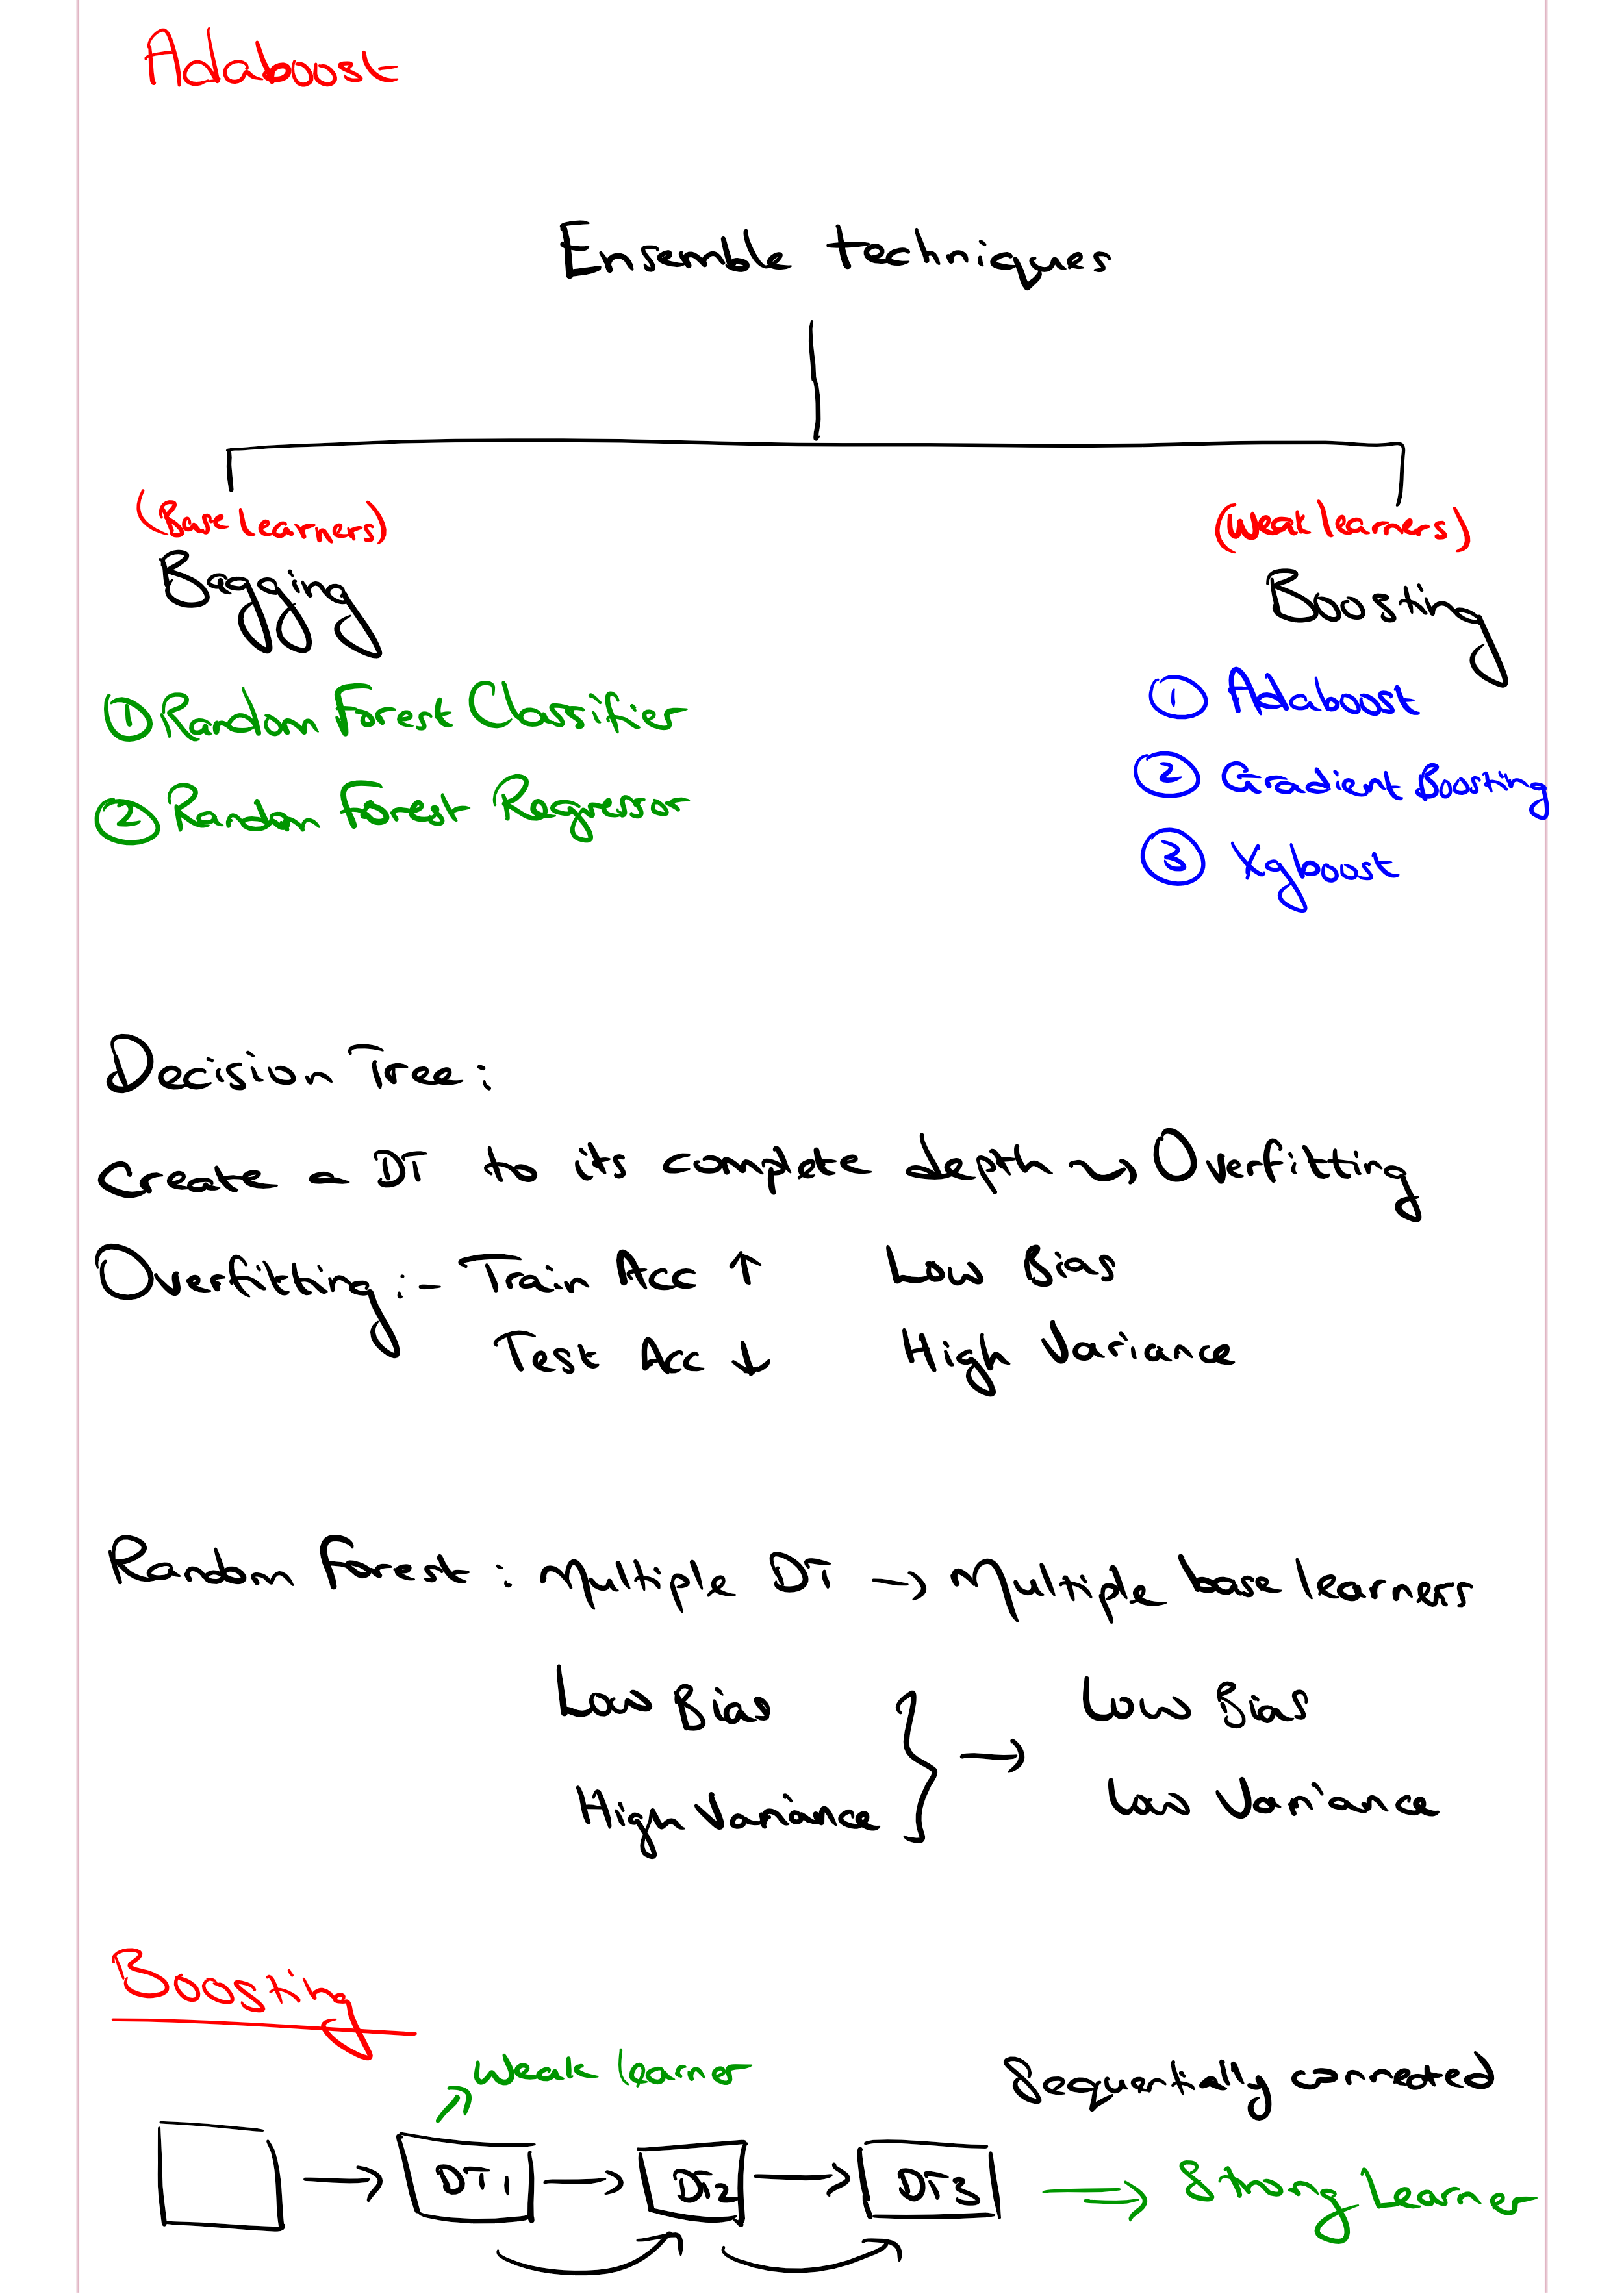 Adaboost
Ensemble techniques
(Base learners)
Bagging
① Random Forest Classifier
② Random Forest Regressor
(Weak learners)
Boosting
① Adaboost
② Gradient Boosting
③ Xgboost
Decision Tree :
Create a DT to its complete depth ⇝ Overfitting
Overfitting :- Train Acc ↑ Low Bias
Test Acc ↓ High Variance
Random Forest : Multiple DT → Multiple base learners
Low Bias } → Low Bias
High Variance Low Variance
Boosting
Weak learner Sequentially connected
→ DT1 → DT2 → DT3 → Strong Learner